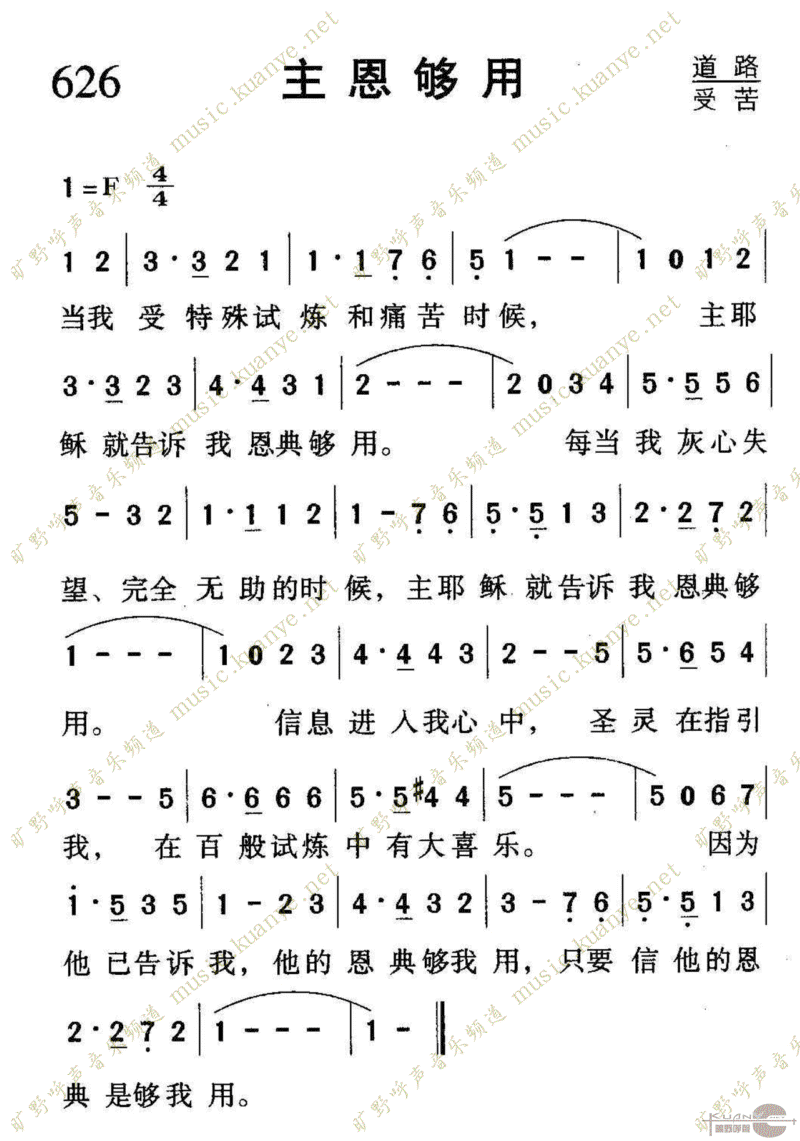 626 主恩够用 道路
受苦
1=F 4/4
1 2 | 3 · 3 2 1 | 1 · 1 7 6 | 5 1 - - | 1 0 1 2
当我 受 特殊试 炼 和痛苦 时候， 主耶
3 · 3 2 3 | 4 · 4 3 1 | 2 - - - | 2 0 3 4 | 5 · 5 5 6
稣 就告诉 我 恩典够 用。 每当 我 灰心失
5 - 3 2 | 1 · 1 1 2 | 1 - 7 6 | 5 · 5 1 3 | 2 · 2 7 2
望、完全 无 助的时 候，主耶 稣 就告诉 我 恩典够
1 - - - | 1 0 2 3 | 4 · 4 4 3 | 2 - - 5 | 5 · 6 5 4
用。 信息 进 入我心 中， 圣 灵 在指引
3 - - 5 | 6 · 6 6 6 | 5 · 5 #4 4 | 5 - - - | 5 0 6 7
我， 在 百 般试炼 中 有大喜 乐。 因为
i · 5 3 5 | 1 - 2 3 | 4 · 4 3 2 | 3 - 7 6 | 5 · 5 1 3
他 已告诉 我，他的 恩 典够我 用，只要 信 他的恩
2 · 2 7 2 | 1 - - - | 1 - ‖
典 是够我 用。
旷野呼声音乐频道 music.kuanye.net
KUANYE
旷野呼声